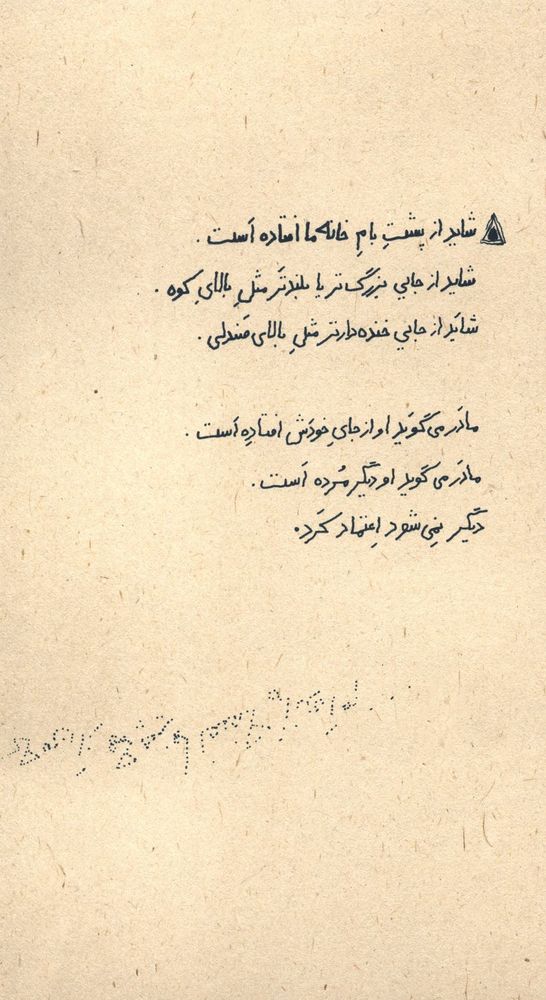 شاید از پشتِ بامِ خانه ما افتاده اَست .
شاید از جایی بزرگ تر یا بلندتَر مثلِ بالایِ کوه .
شایَد از جایی خنده دارتر مثلِ بالای صَندلی .
مادَر می گویَد او از جایِ خودَش افتادِه اَست .
مادَر می گوید او دیگَر مُرده اَست .
دیگَر نِمی شود اِعتماد کَرد .